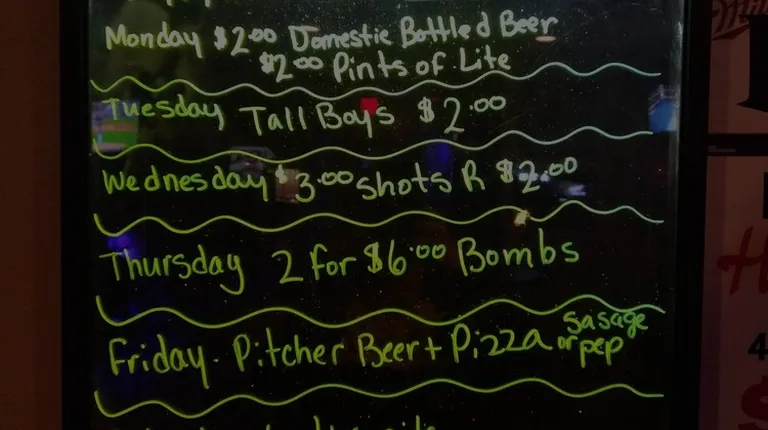 Monday $2.00 Domestic Bottled Beer
$2.00 Pints of Lite
Tuesday Tall Boys $2.00
Wednesday $3.00 shots R $2.00
Thursday 2 for $6.00 Bombs
Friday. Pitcher Beer + Pizza sasage
or pep